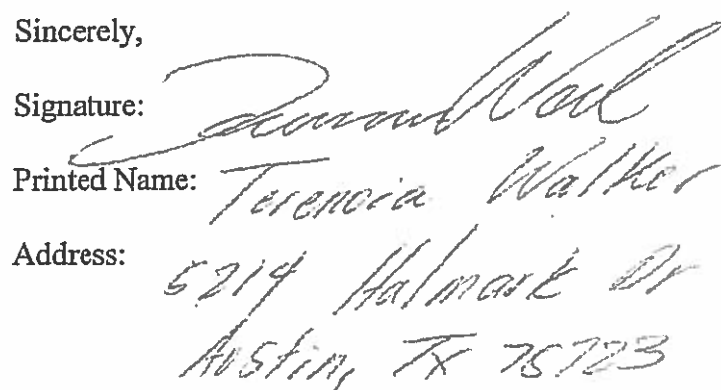 Sincerely,
Signature:
Printed Name: Terencia Walker
Address: 5214 Halmark Dr
Austin, Tx 75723